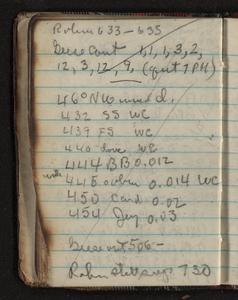 Robin 633-635
Geese cont 1, 1, 1, 3, 2,
12, 3, 12, 9, (quit 7 PM)
46° NW wind.
432 SS WC
439 FS WC
440 dove WC
444 BB 0.012
445 robin 0.014 WC
450 Card 0.02
454 Jay 0.03
Geese out 506-
Robin still sings 730